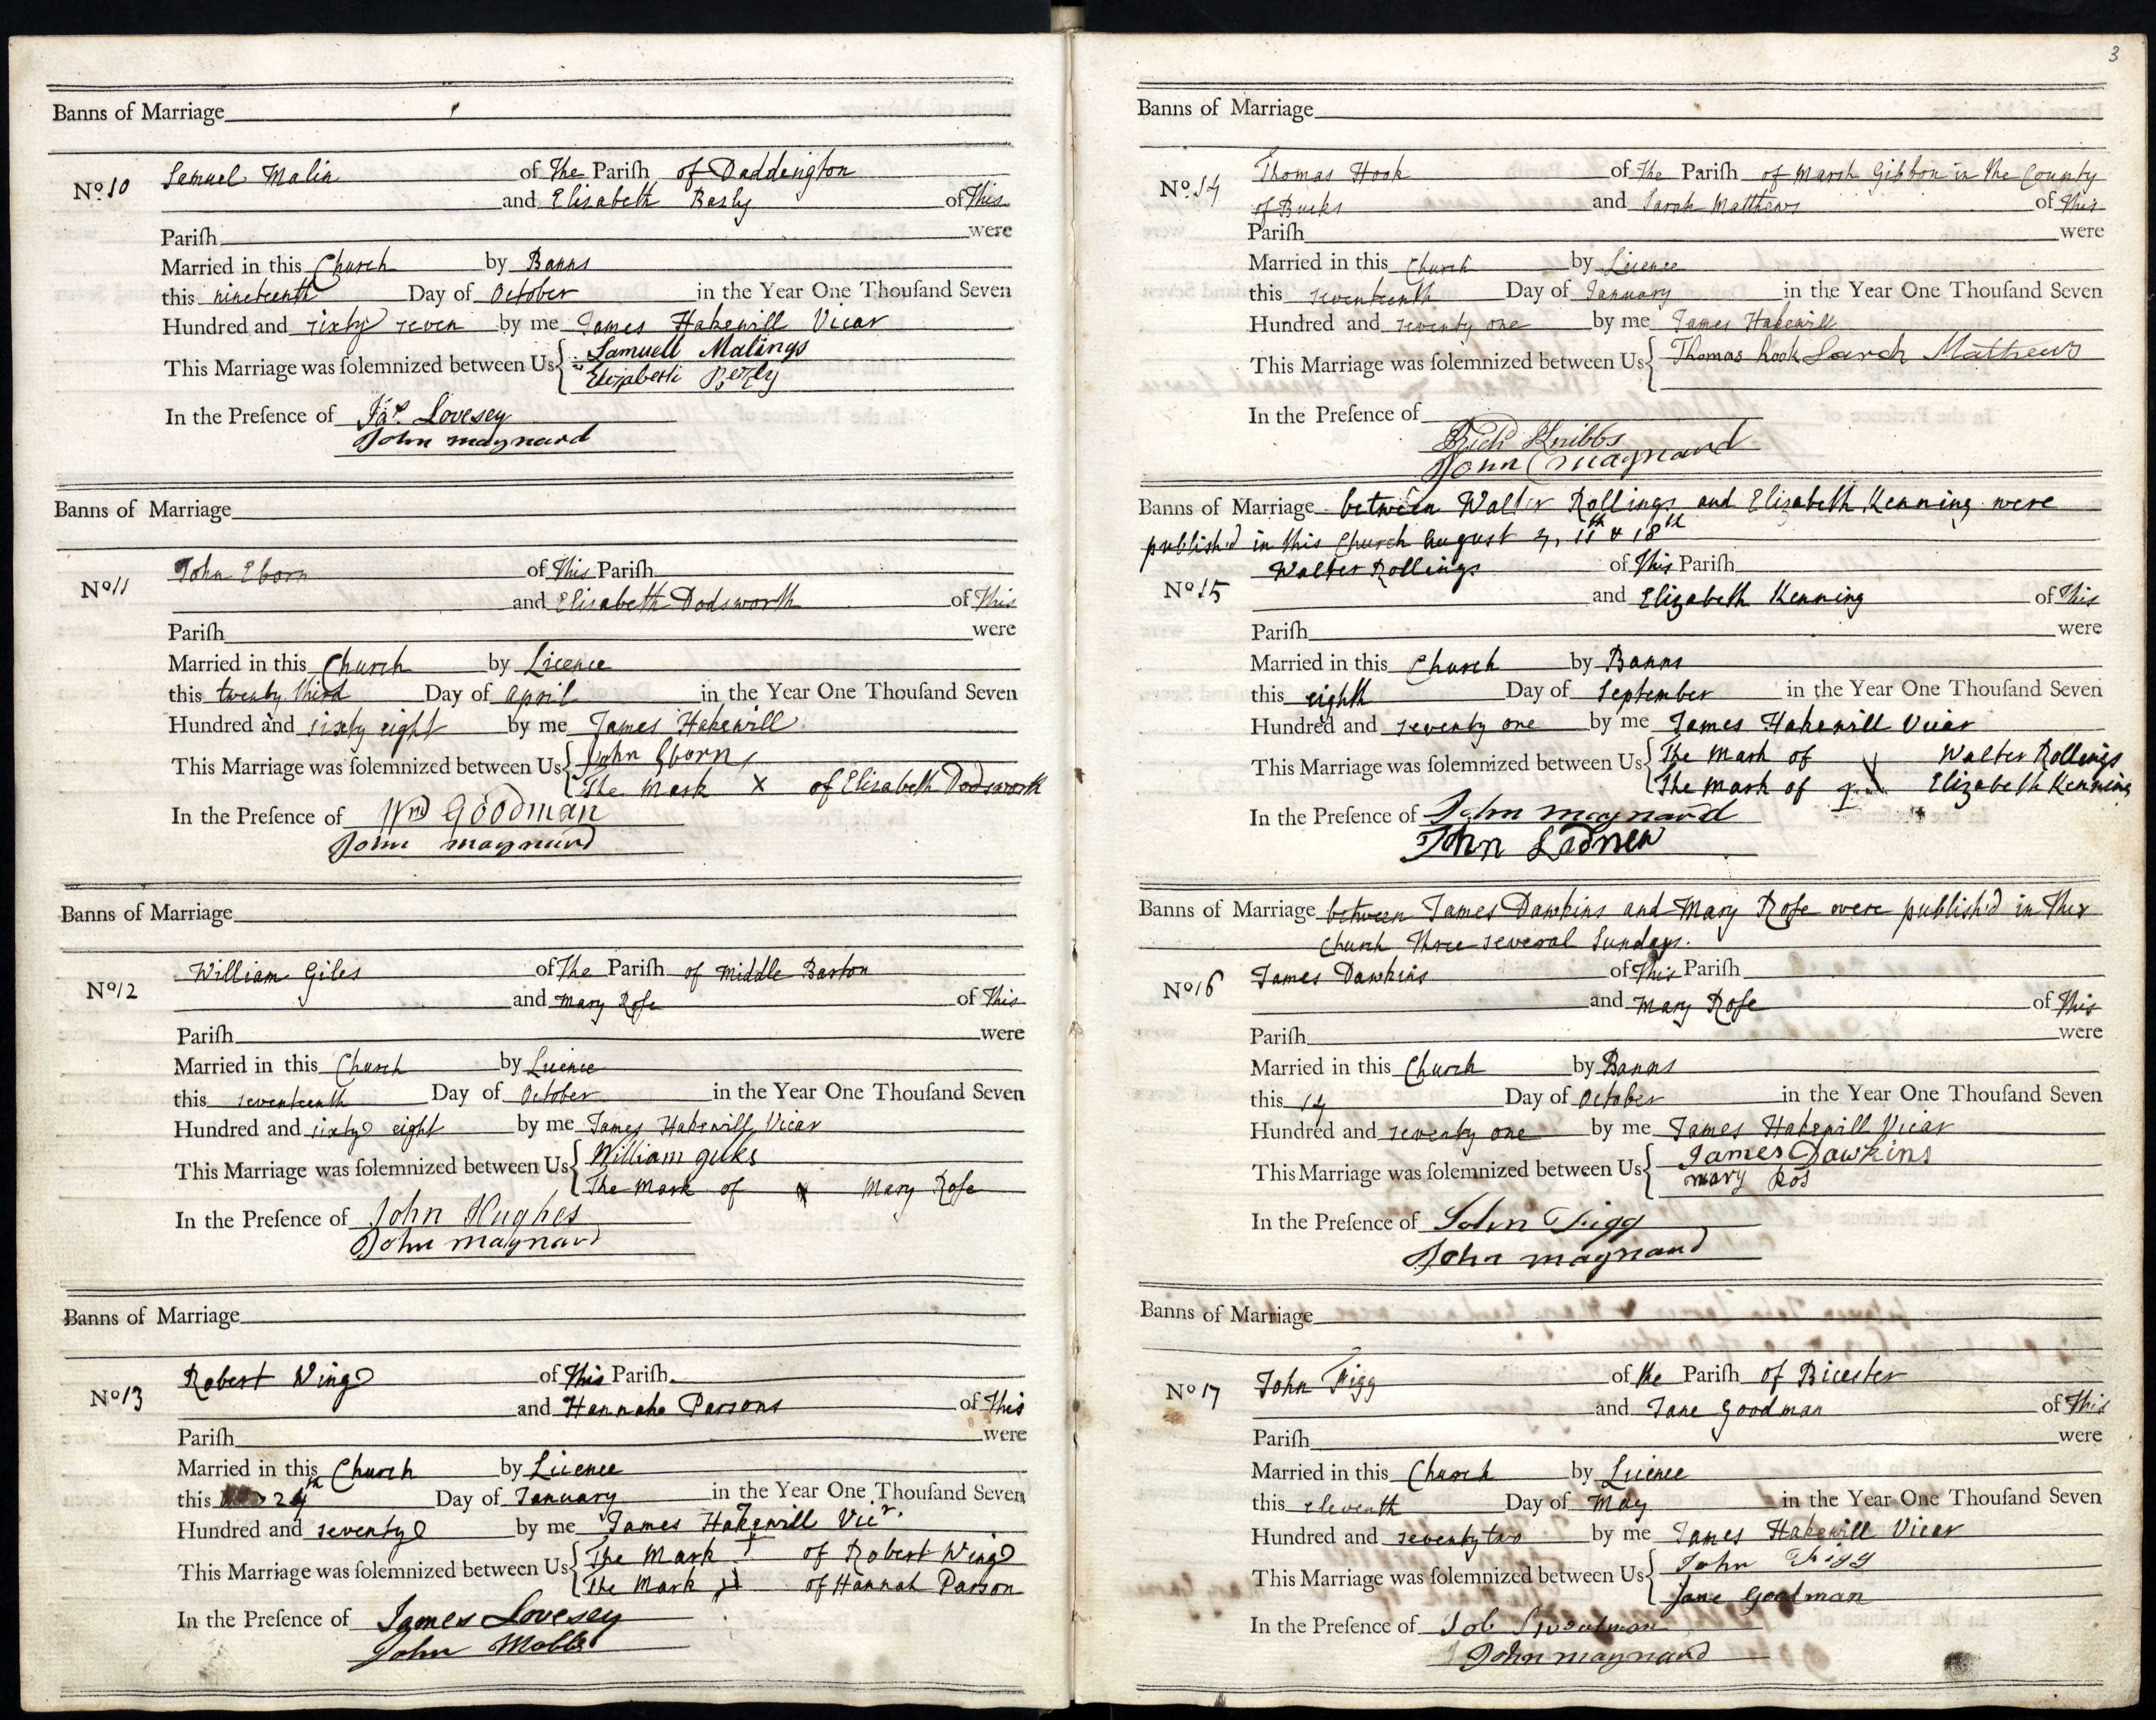 Banns of Marriage
No. 10 Samuel Malin of The Parish of Daddington
and Elisabeth Basly of This
Parish were
Married in this Church by Banns
this nineteenth Day of October in the Year One Thousand Seven
Hundred and sixty seven by me James Hakewill Vicar
This Marriage was solemnized between Us { Samuell Malings
Elizabeth
In the Presence of Jas. Lovesey
John maynard
Banns of Marriage
No 11 John Eborn of This Parish
and Elisabeth Dodsworth of This
Parish were
Married in this Church by Licence
this twenty third Day of April in the Year One Thousand Seven
Hundred and sixty eight by me James Hakewill
This Marriage was solemnized between Us { John Eborn
The Mark X of Elisabeth Dodsworth
In the Presence of Wm Goodman
John maynard
Banns of Marriage
No 12 William Giles of The Parish of Middle Barton
and Mary Rose of This
Parish were
Married in this Church by Licence
this seventeenth Day of October in the Year One Thousand Seven
Hundred and sixty eight by me James Hakewill Vicar
This Marriage was solemnized between Us { William
The Mark of X Mary Rose
In the Presence of John Hughes
John maynard
Banns of Marriage
No 13 Robert Wing of This Parish
and Hannah Parsons of This
Parish were
Married in this Church by Licence
this 24th Day of January in the Year One Thousand Seven
Hundred and seventy by me James Hakewill Vicr.
This Marriage was solemnized between Us { The Mark of Robert Wing
The Mark of Hannah Parson
In the Presence of James Lovesey
John Mobbs
3
Banns of Marriage
No. 14 Thomas Hook of The Parish of Marsh Gibbon in the County
of Bucks and Sarah Matthews of This
Parish were
Married in this Church by Licence
this seventeenth Day of January in the Year One Thousand Seven
Hundred and seventy one by me James Hakewill
This Marriage was solemnized between Us { Thomas hook Sarah Mathews
In the Presence of
Richd Knibbs
John Maynard
Banns of Marriage between Walter Rollings and Elizabeth Kenning were
publish'd in this Church August 4, 11th & 18th
No 15 Walter Rollings of This Parish
and Elizabeth Kenning of This
Parish were
Married in this Church by Banns
this eighth Day of September in the Year One Thousand Seven
Hundred and seventy one by me James Hakewill Vicar
This Marriage was solemnized between Us { The Mark of Walter Rollings
The Mark of Elizabeth Kenning
In the Presence of John maynard
John
Banns of Marriage between James Dawkins and Mary Rose were publish'd in This
Church three several Sundays.
No 16 James Dawkins of This Parish
and Mary Rose of This
Parish were
Married in this Church by Banns
this 14 Day of October in the Year One Thousand Seven
Hundred and seventy one by me James Hakewill Vicar
This Marriage was solemnized between Us { James Dawkins
mary Ros
In the Presence of John Figg
John maynard
Banns of Marriage
No 17 John Figg of the Parish of Bicester
and Jane Goodman of This
Parish were
Married in this Church by Licence
this eleventh Day of May in the Year One Thousand Seven
Hundred and seventy two by me James Hakewill Vicar
This Marriage was solemnized between Us { John Figg
Jane Goodman
In the Presence of Job
John maynard